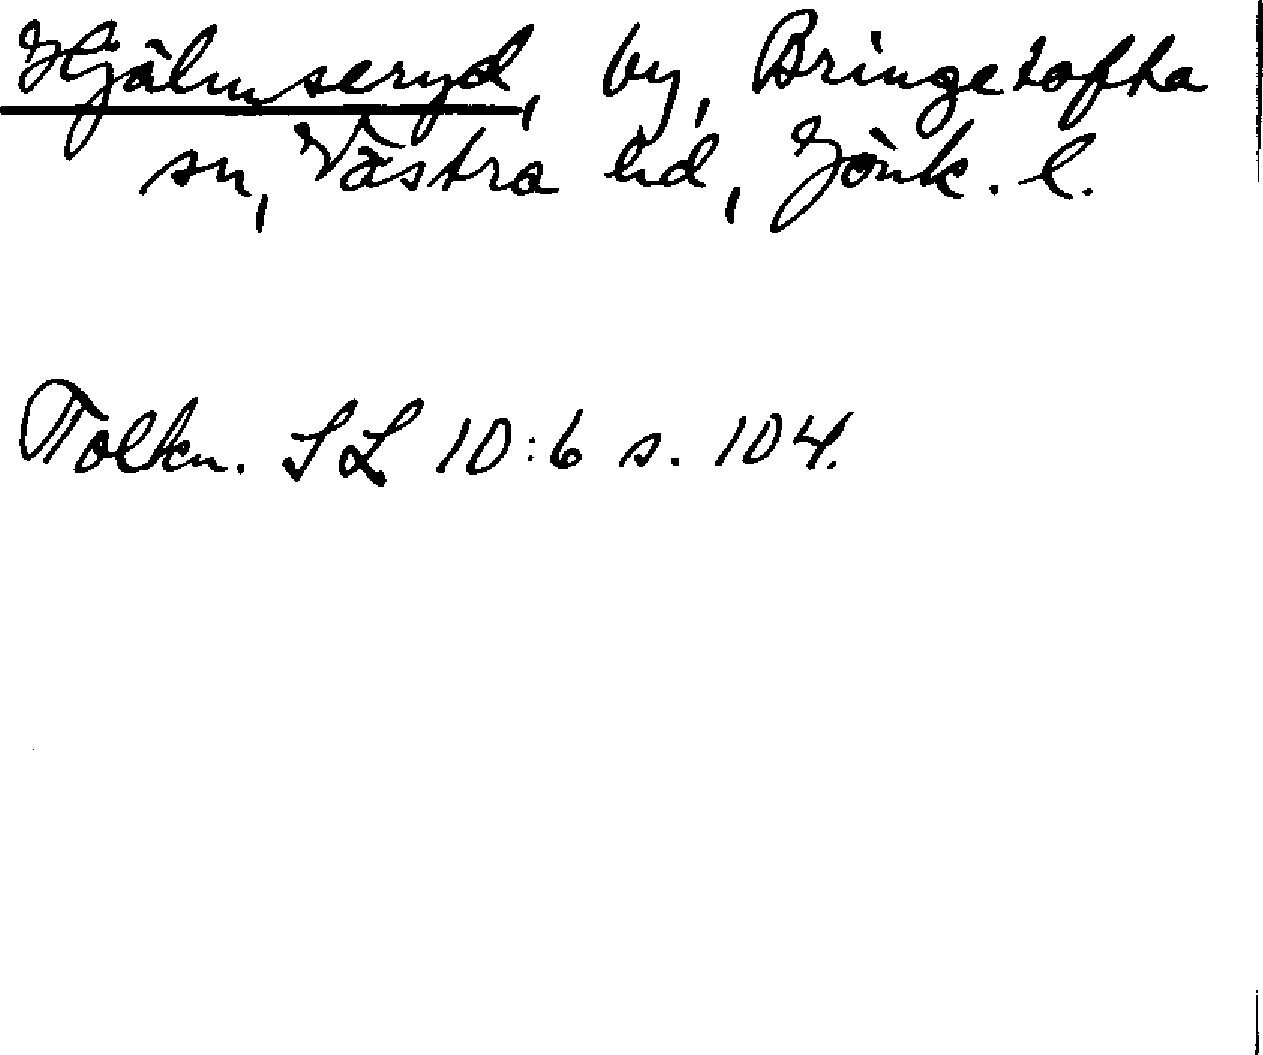 Hjälmseryd, by, Bringetofta
sn, Västra hd, Jönk. l.
Tolkn. SL 10:6 s. 104.